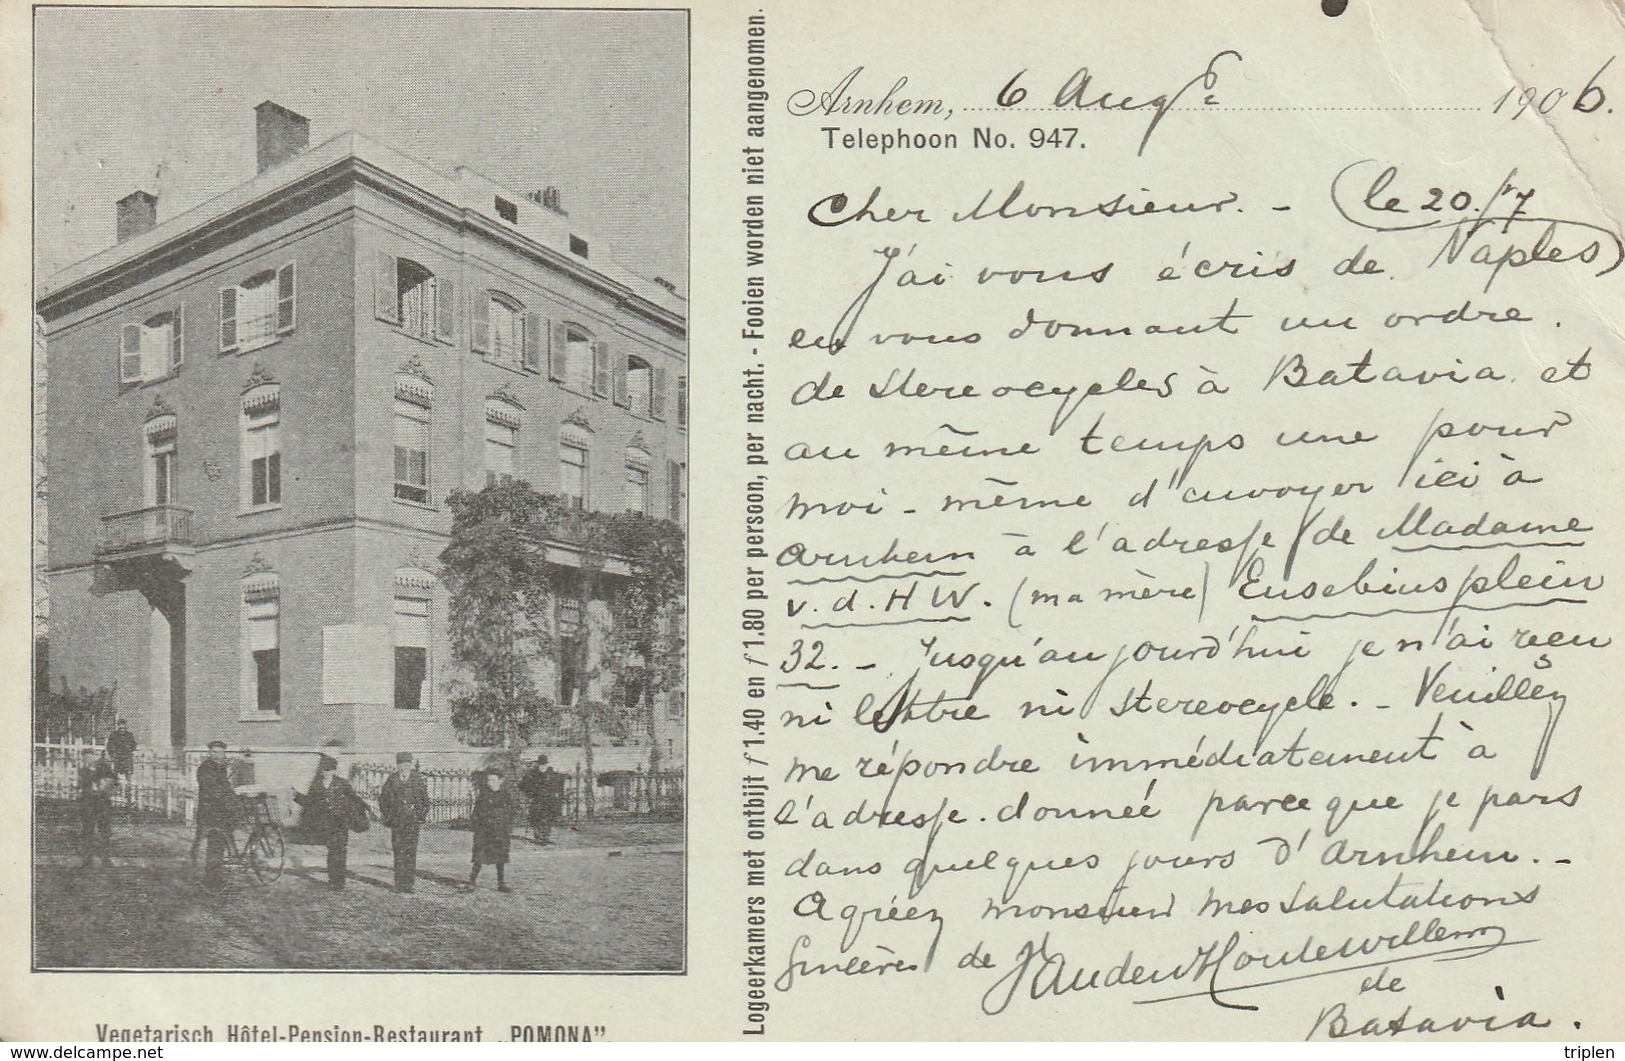 Arnhem, 6 Aug 1906.
Telephoon No. 947.
Cher Monsieur. - (le 20/7
J'ai vous écris de Naples)
en vous donnant un ordre
de stereocycles à Batavia et
au même temps une pour
moi-même d'envoyer ici à
Arnhem à l'adresse de Madame
v. d. H W. (ma mère) Eusebiusplein
32. - Jusqu'aujourd'hui je n'ai reçu
ni lettre ni stereocycle. - Veuillez
me répondre immédiatement à
l'adresse donnée parce que je pars
dans quelques jours d'Arnhem. -
Agréez monsieur mes salutations
sincères de
de
Batavia.
Logeerkamers met ontbijt f 1.40 en f 1.80 per persoon, per nacht. - Fooien worden niet aangenomen.
Vegetarisch Hôtel-Pension-Restaurant „POMONA”.
https://www.delcampe.net
triplen